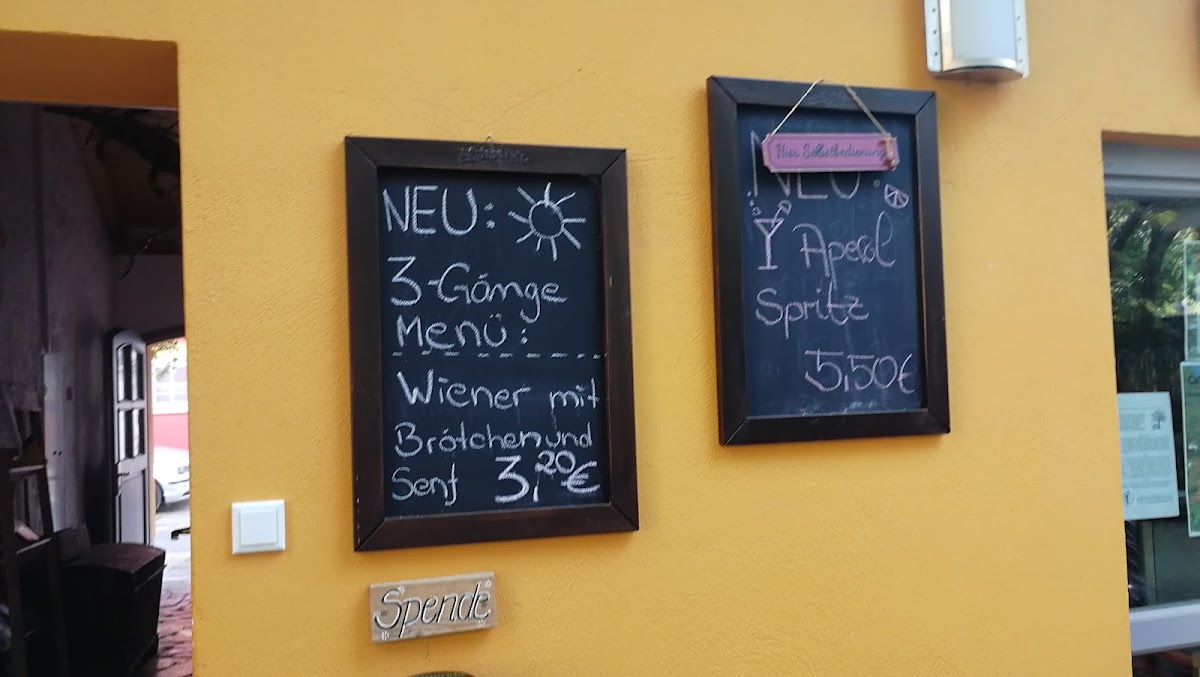 NEU:
3-Gänge
Menü:
Wiener mit
Brötchen und
Senf 3,20€
Spende
Hier Selbstbedienung
NEU:
Aperol
Spritz
5,50€